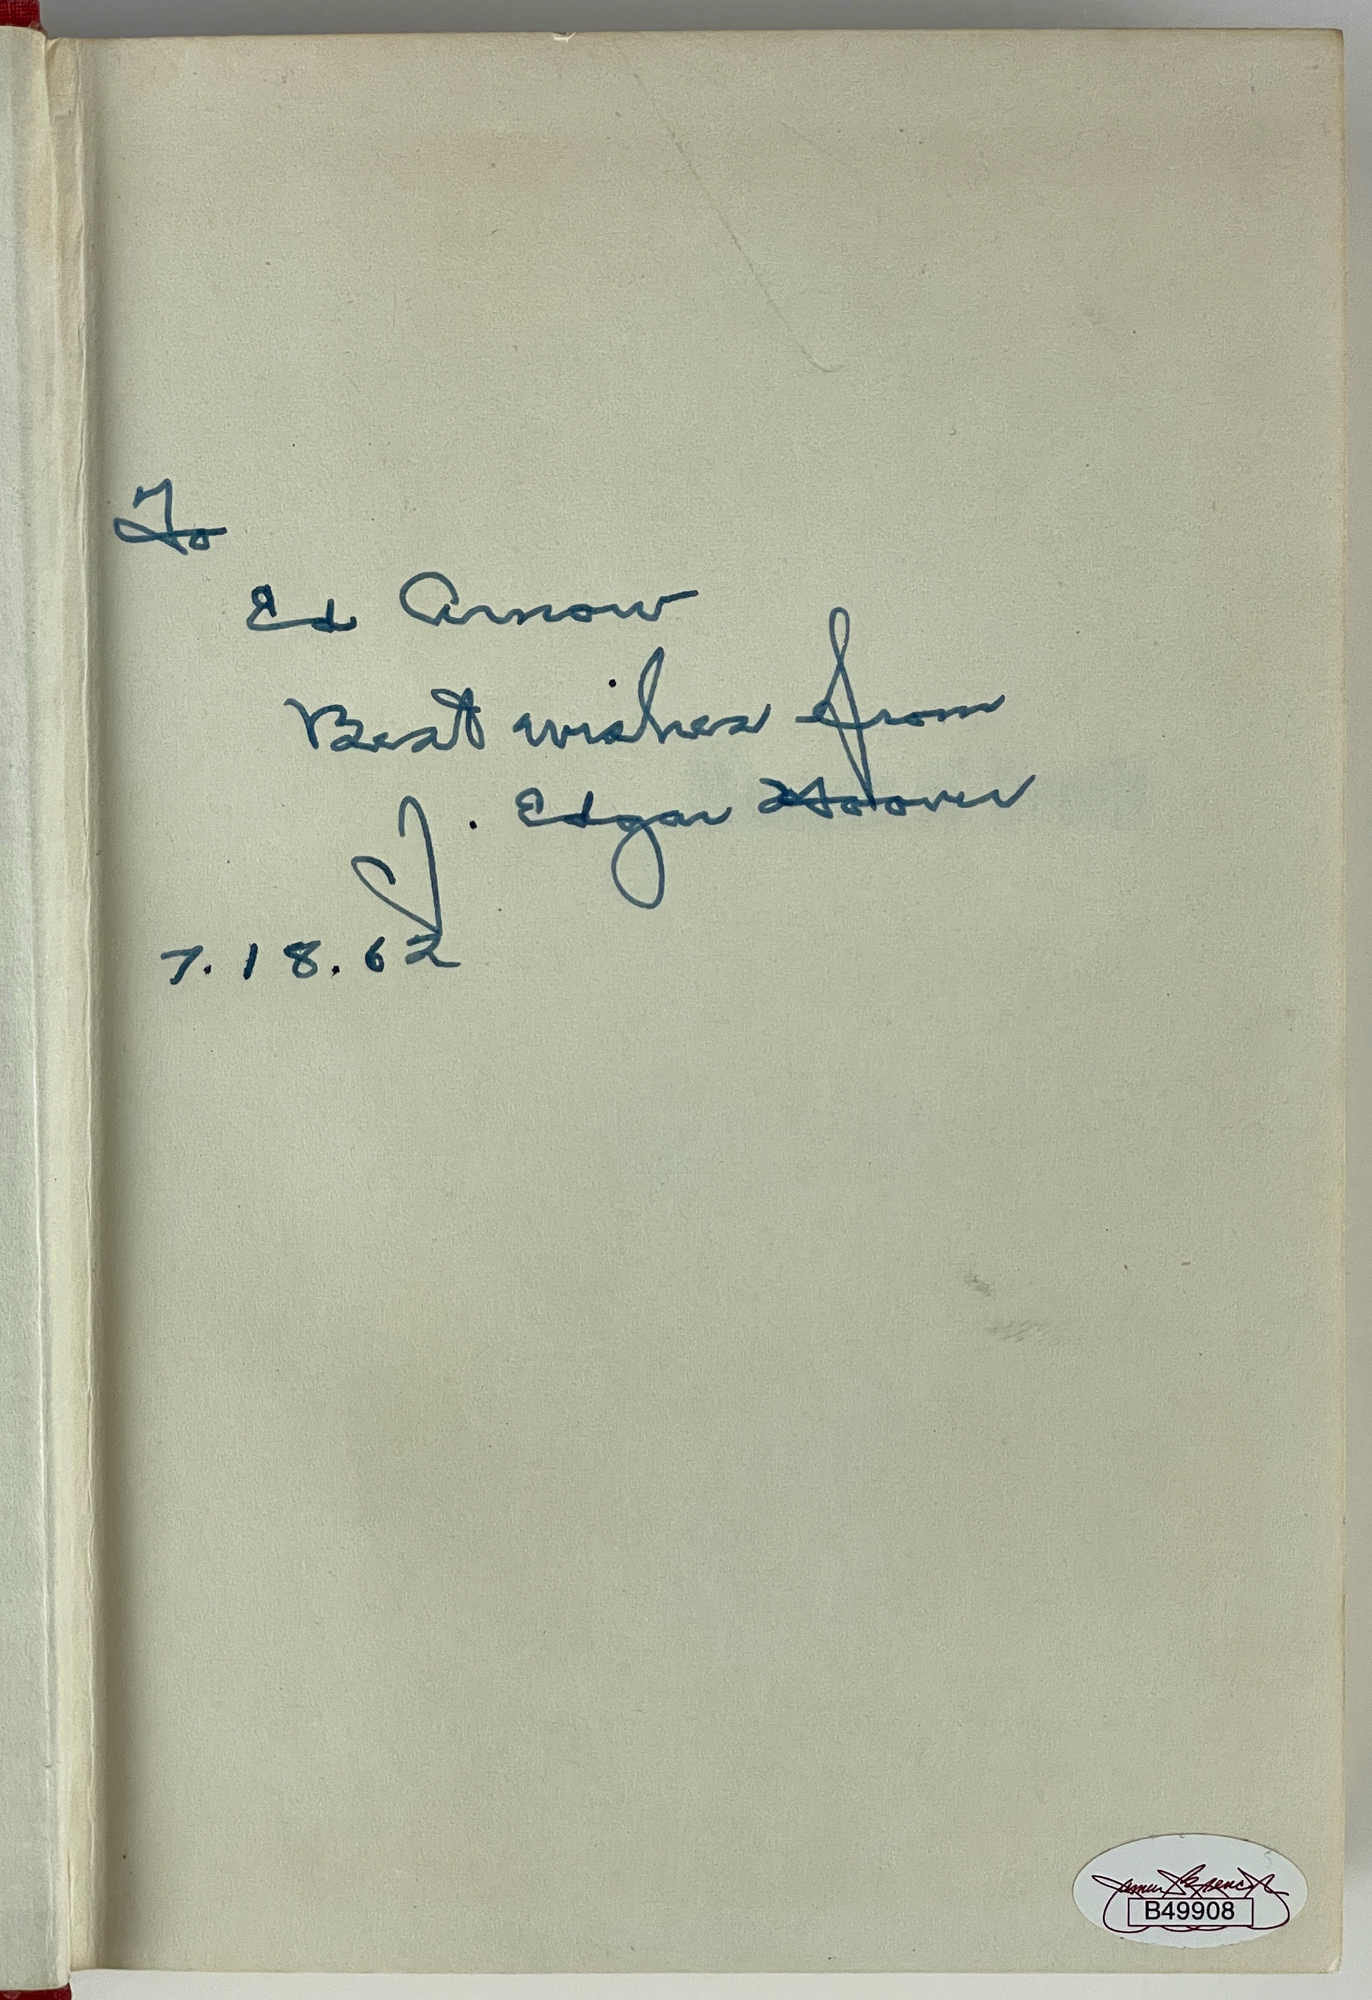 To
Ed Arnow
Best wishes from
J. Edgar Hoover
7.18.62
James Spence
B49908